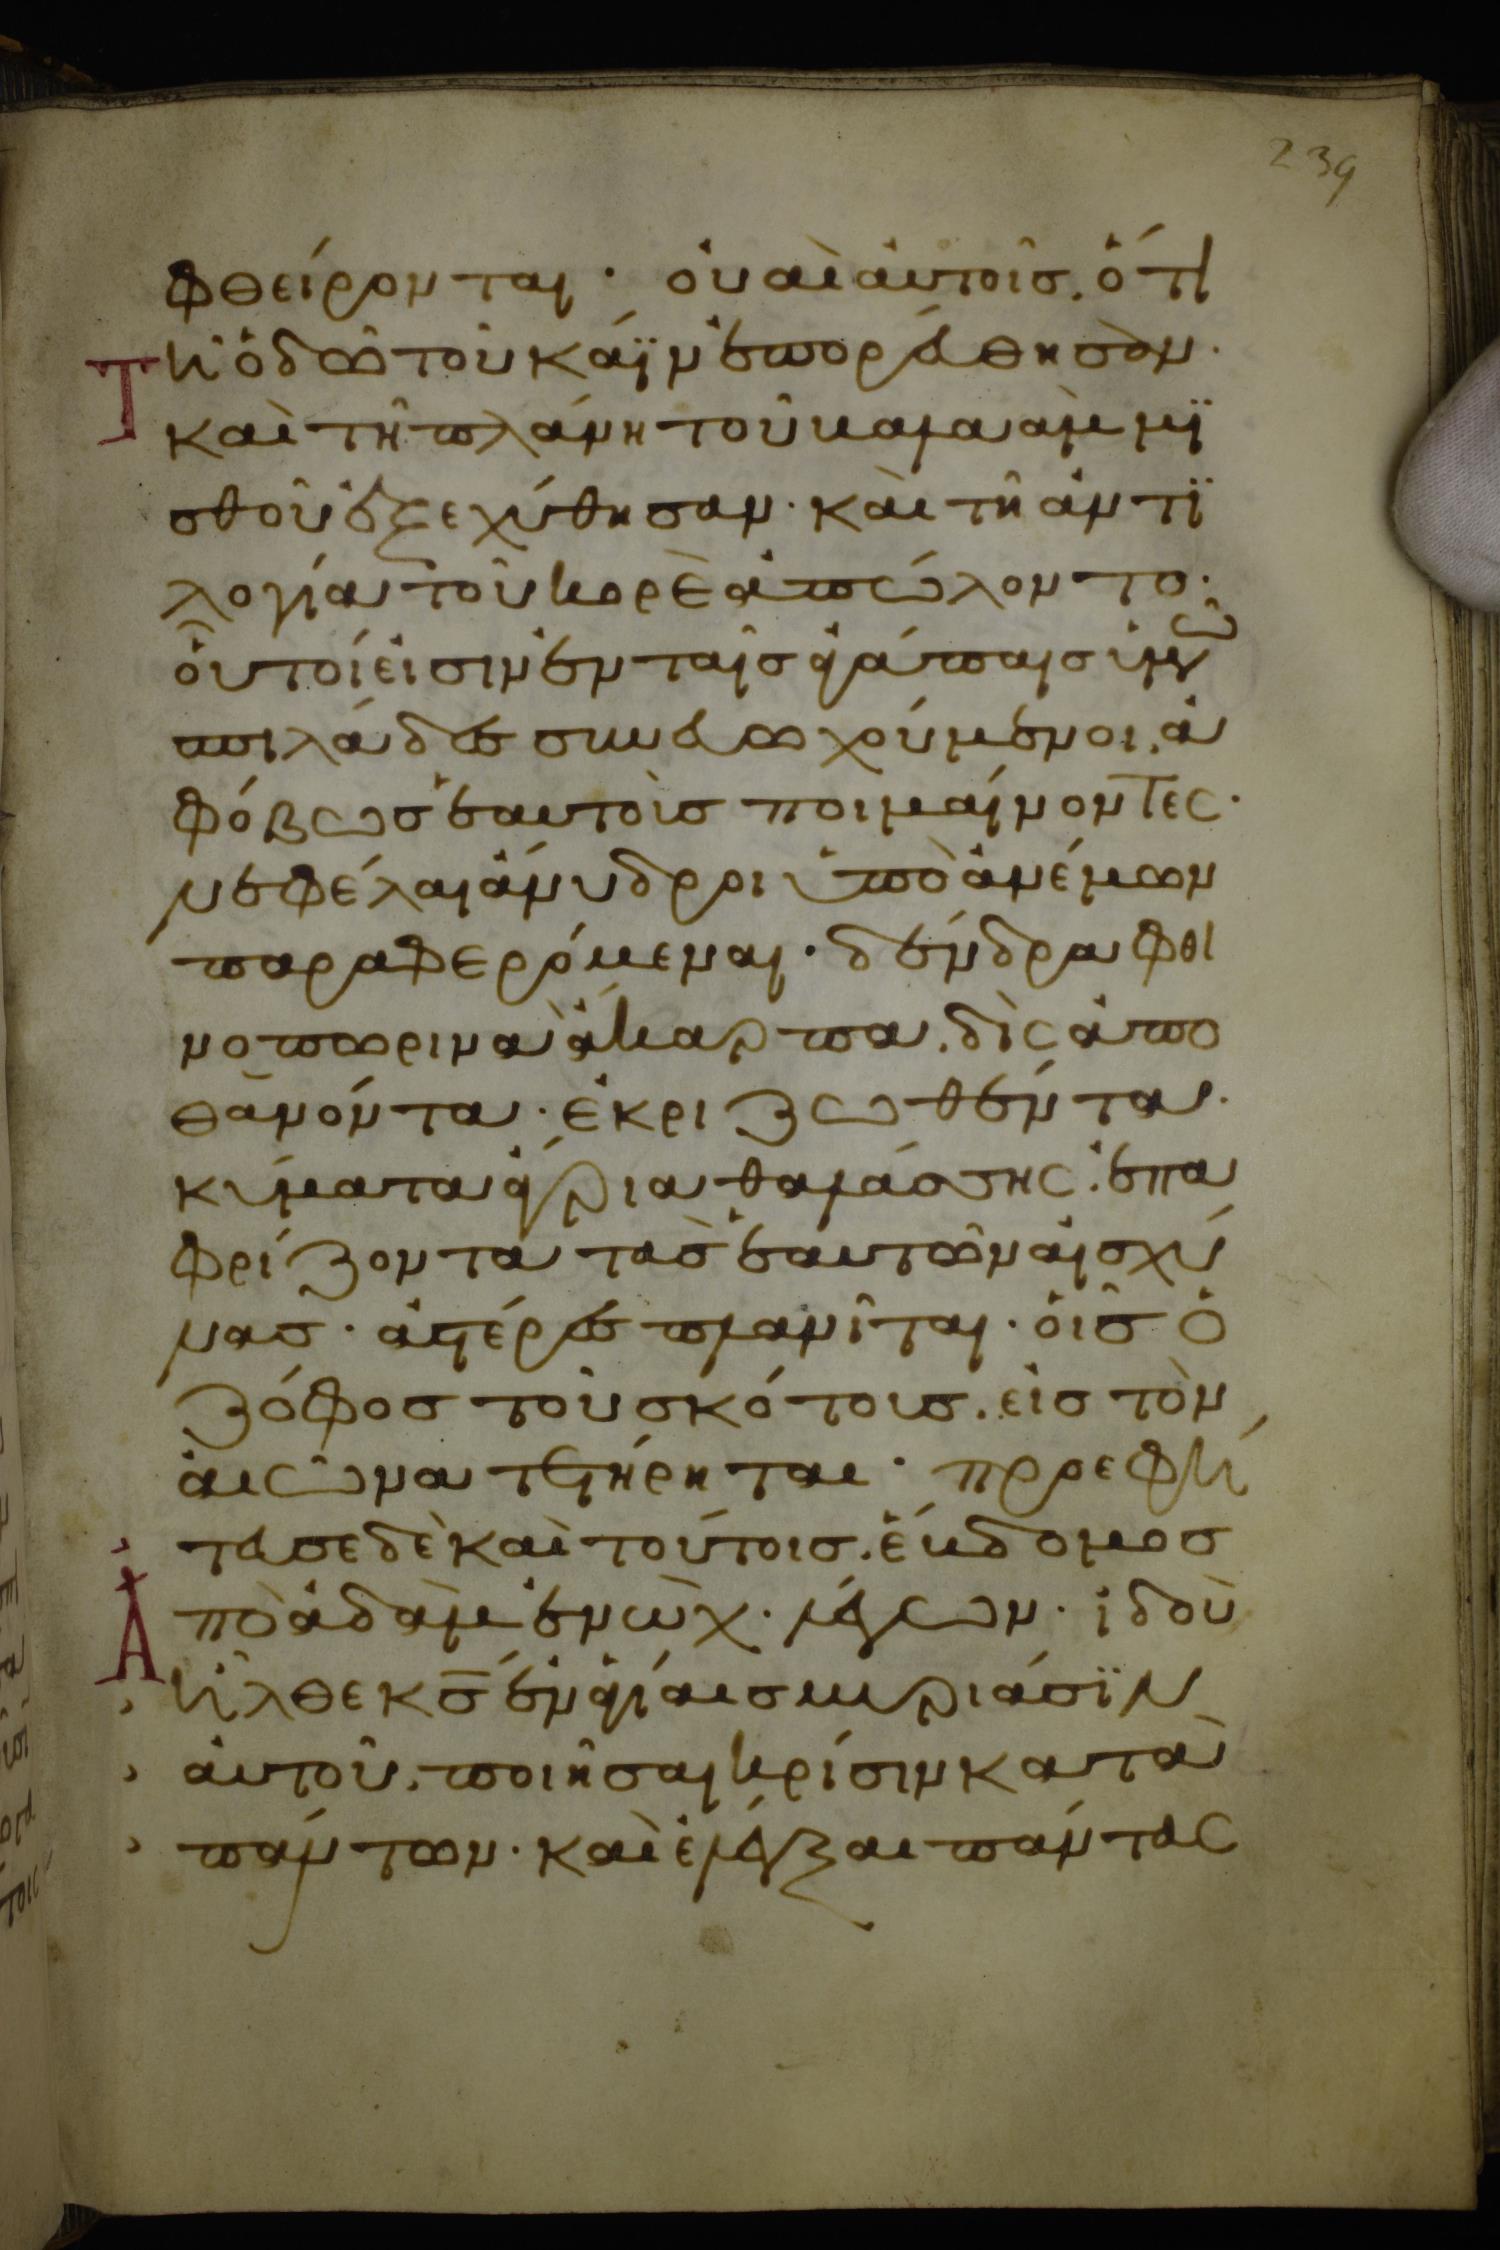 239
φθείρονται · ὀυαὶ ἀυτοῖσ. ὅτι
Τῆ ὁδῶ τοῦ κάϊν ἐπορεύθησὰν ·
καὶ τῆ πλάνη τοῦ βαλαὰμ μϊ
σθοῦ ἐξεχύθησαν · καὶ τῆ ἀντϊ
λογία τοῦ κορὲ ἀπώλοντο ·
ὁυτοί εἰσιν ἐν ταῖσ ἀγάπαισ ὑμῶν
σπιλάδεσ συνευωχούμενοι. ἀ
φόβωσ ἑαυτοὺσ ποιμαίνοντες ·
νεφέλαι ἄνυδροι ὑπὸ ἀνέμων
παραφερόμεναι · δένδρα φθι
νοπωρινὰ ἄκαρπα. δὶς ἀπο
θανόντα · ἐκριζωθέντα ·
κύματα ἄγρια θαλάσσης. ἐπα
φρίζοντα τὰσ ἑαυτῶν αἰσχύ
νασ · ἀστέρεσ πλανῖται · ὁῖσ ὁ
ζόφοσ τοῦ σκότουσ. εἰσ τὸν
ἀιῶνα τετήρηται · προεφή
τευσε δὲ καὶ τούτοισ. ἕβδομοσ
Ἀπὸ ἀδὰμ ἐνὼχ · λέγων · ἰδοὺ
ἦλθε κ̅σ̅ ἐν ἁγίαισ μυριάσϊν
ἀυτοῦ. ποιῆσαι κρίσιν κατὰ
πάντων · καὶ ἐλέγξαι πάντας